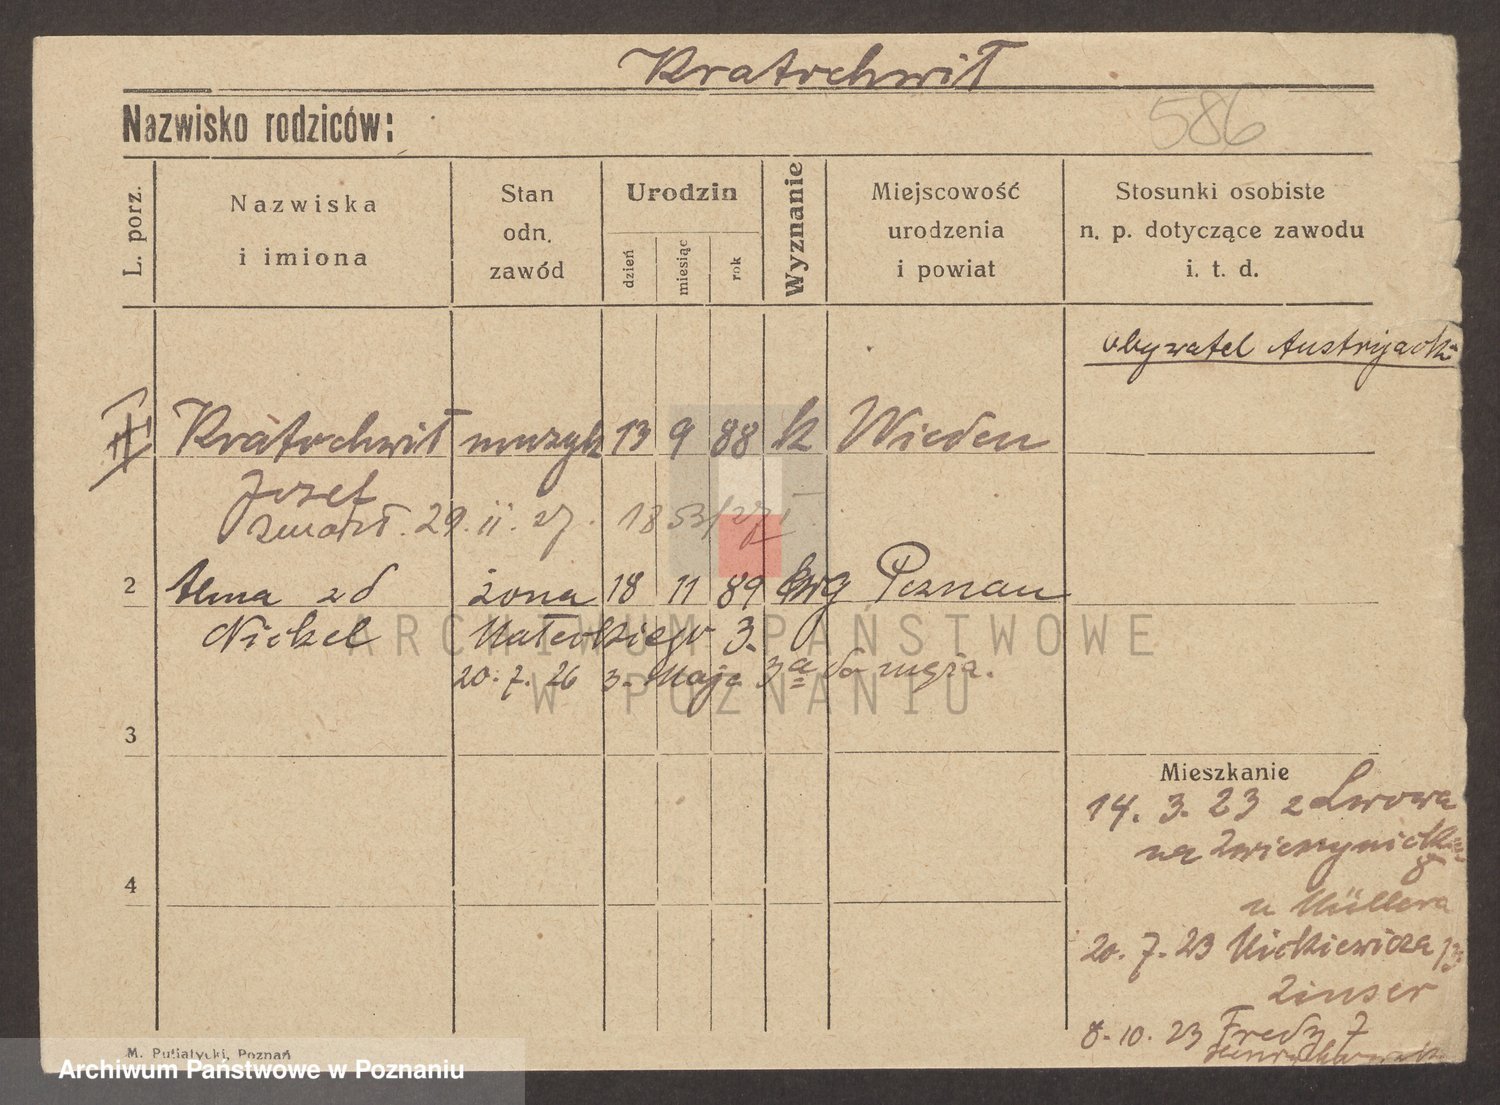 Kratochwił
Nazwisko rodziców:
586
L. porz.
Nazwiska
i imiona
Stan
odn.
zawód
Urodzin
dzień
miesiąc
rok
Wyznanie
Miejscowość
urodzenia
i powiat
Stosunki osobiste
n. p. dotyczące zawodu
i. t. d.
obywatel Austryjacki
Kratochwił muzyk 13 9 88 k Wiedeń
Jozef
zmarł. 29. II. 27. 1853/27
2 Alma zd żona 18 11 89 ewg Poznań
Nickel Małeckiego 3.
20. 7. 26 3. Maja 3a do męża.
3
Mieszkanie
14. 3. 23 z Lwowa
na Zwierzyniecką
8
u Müllera
4
20. 7. 23 Mickiewicza 13
Zinser
8. 10. 23 Fredry 7
M. Putiatycki, Poznań
ARCHIWUM PAŃSTWOWE
W POZNANIU
Archiwum Państwowe w Poznaniu